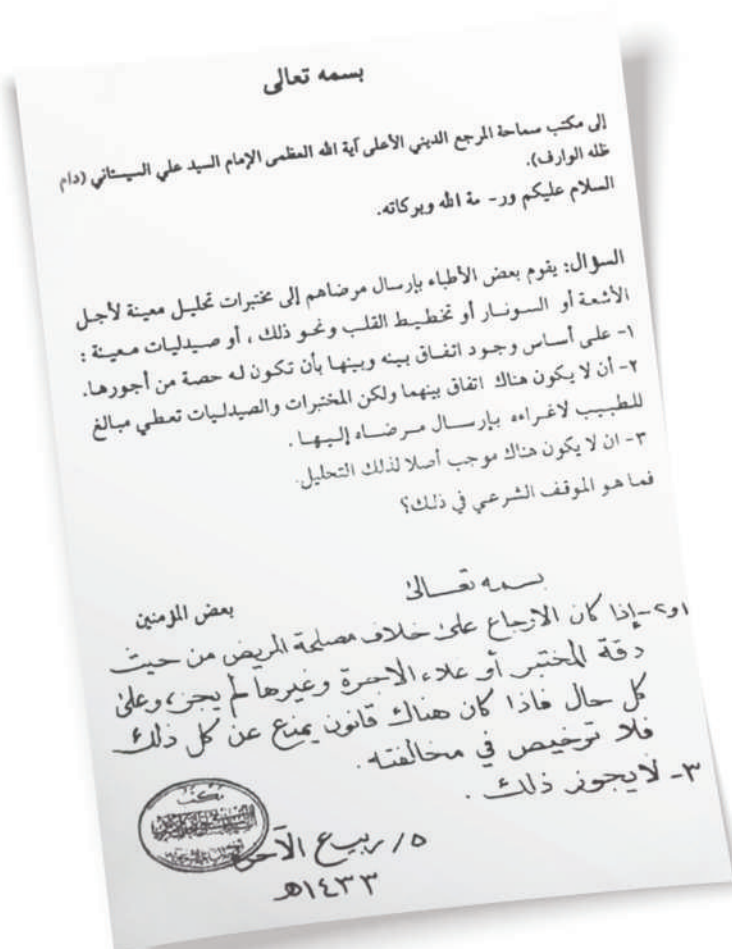 بسمه تعالى
إلى مكتب سماحة المرجع الديني الأعلى آية الله العظمى الإمام السيد علي السيستاني (دام
ظله الوارف).
السلام عليكم ور- مة الله وبركاته.
السؤال: يقوم بعض الأطباء بإرسال مرضاهم إلى مختبرات تحليل معينة لأجل
الأشعة أو السونار أو تخطيط القلب ونحو ذلك ، أو صيدليات معينة :
١- على أساس وجود اتفاق بينه وبينها بأن تكون له حصة من أجورها.
٢- أن لا يكون هناك اتفاق بينهما ولكن المختبرات والصيدليات تعطي مبالغ
للطبيب لاغراءه بإرسال مرضاه إليها .
٣- ان لا يكون هناك موجب أصلا لذلك التحليل.
فما هو الموقف الشرعي في ذلك؟
بعض المؤمنين
بسمه تعالى
١و٢-إذا كان الارجاع على خلاف مصلحة المريض من حيث
دقة المختبر أو غلاء الاجرة وغيرها لم يجز، وعلى
كل حال فاذا كان هناك قانون يمنع عن كل ذلك
فلا ترخيص في مخالفته .
٣- لا يجوز ذلك .
مكتب
٥/ ربيع الآخر
١٤٣٣هـ